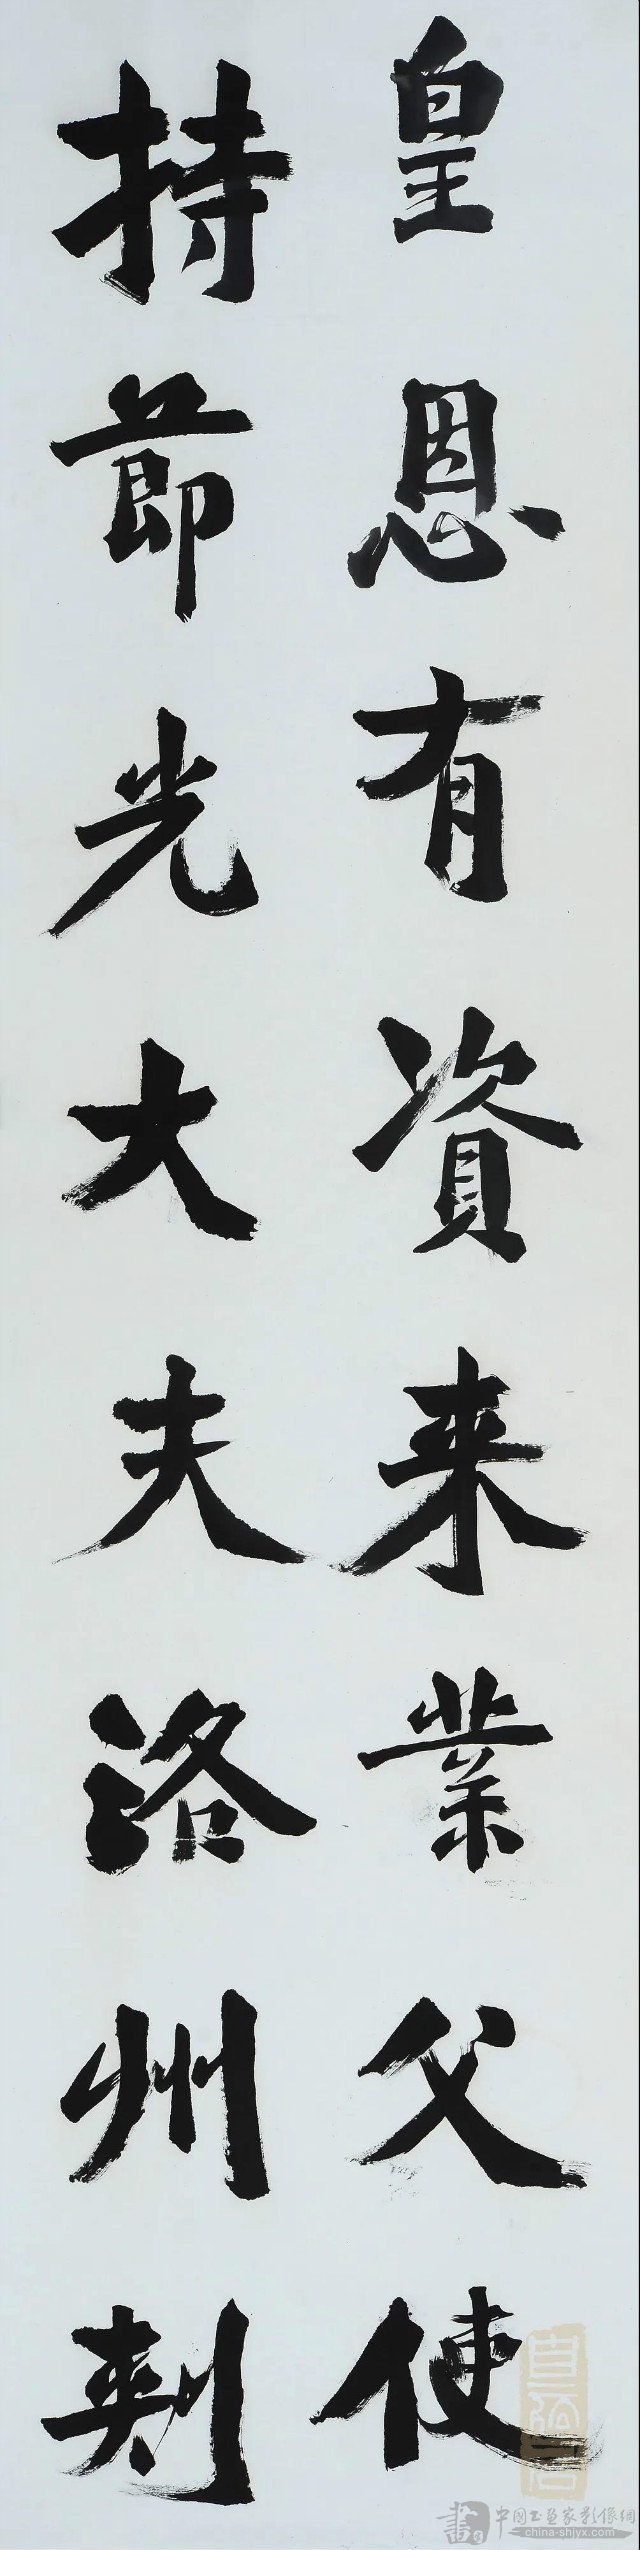 皇恩有資来業父使
持節光大夫洛州刺
中國书画家影像網
china-shjyx.com